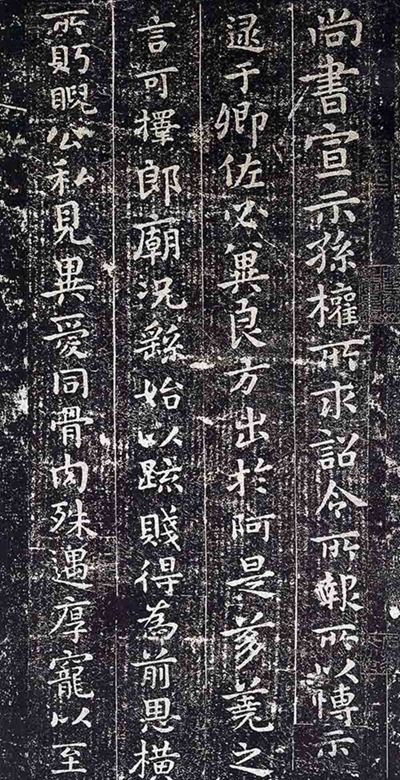 尚書宣示孫權所求詔令所報所以博示
逯于卿佐必冀良方出於阿是芻蕘之
言可擇郎廟況繇始以疏賤得為前恩橫
所䀡睨公私見異愛同骨肉殊遇厚寵以至